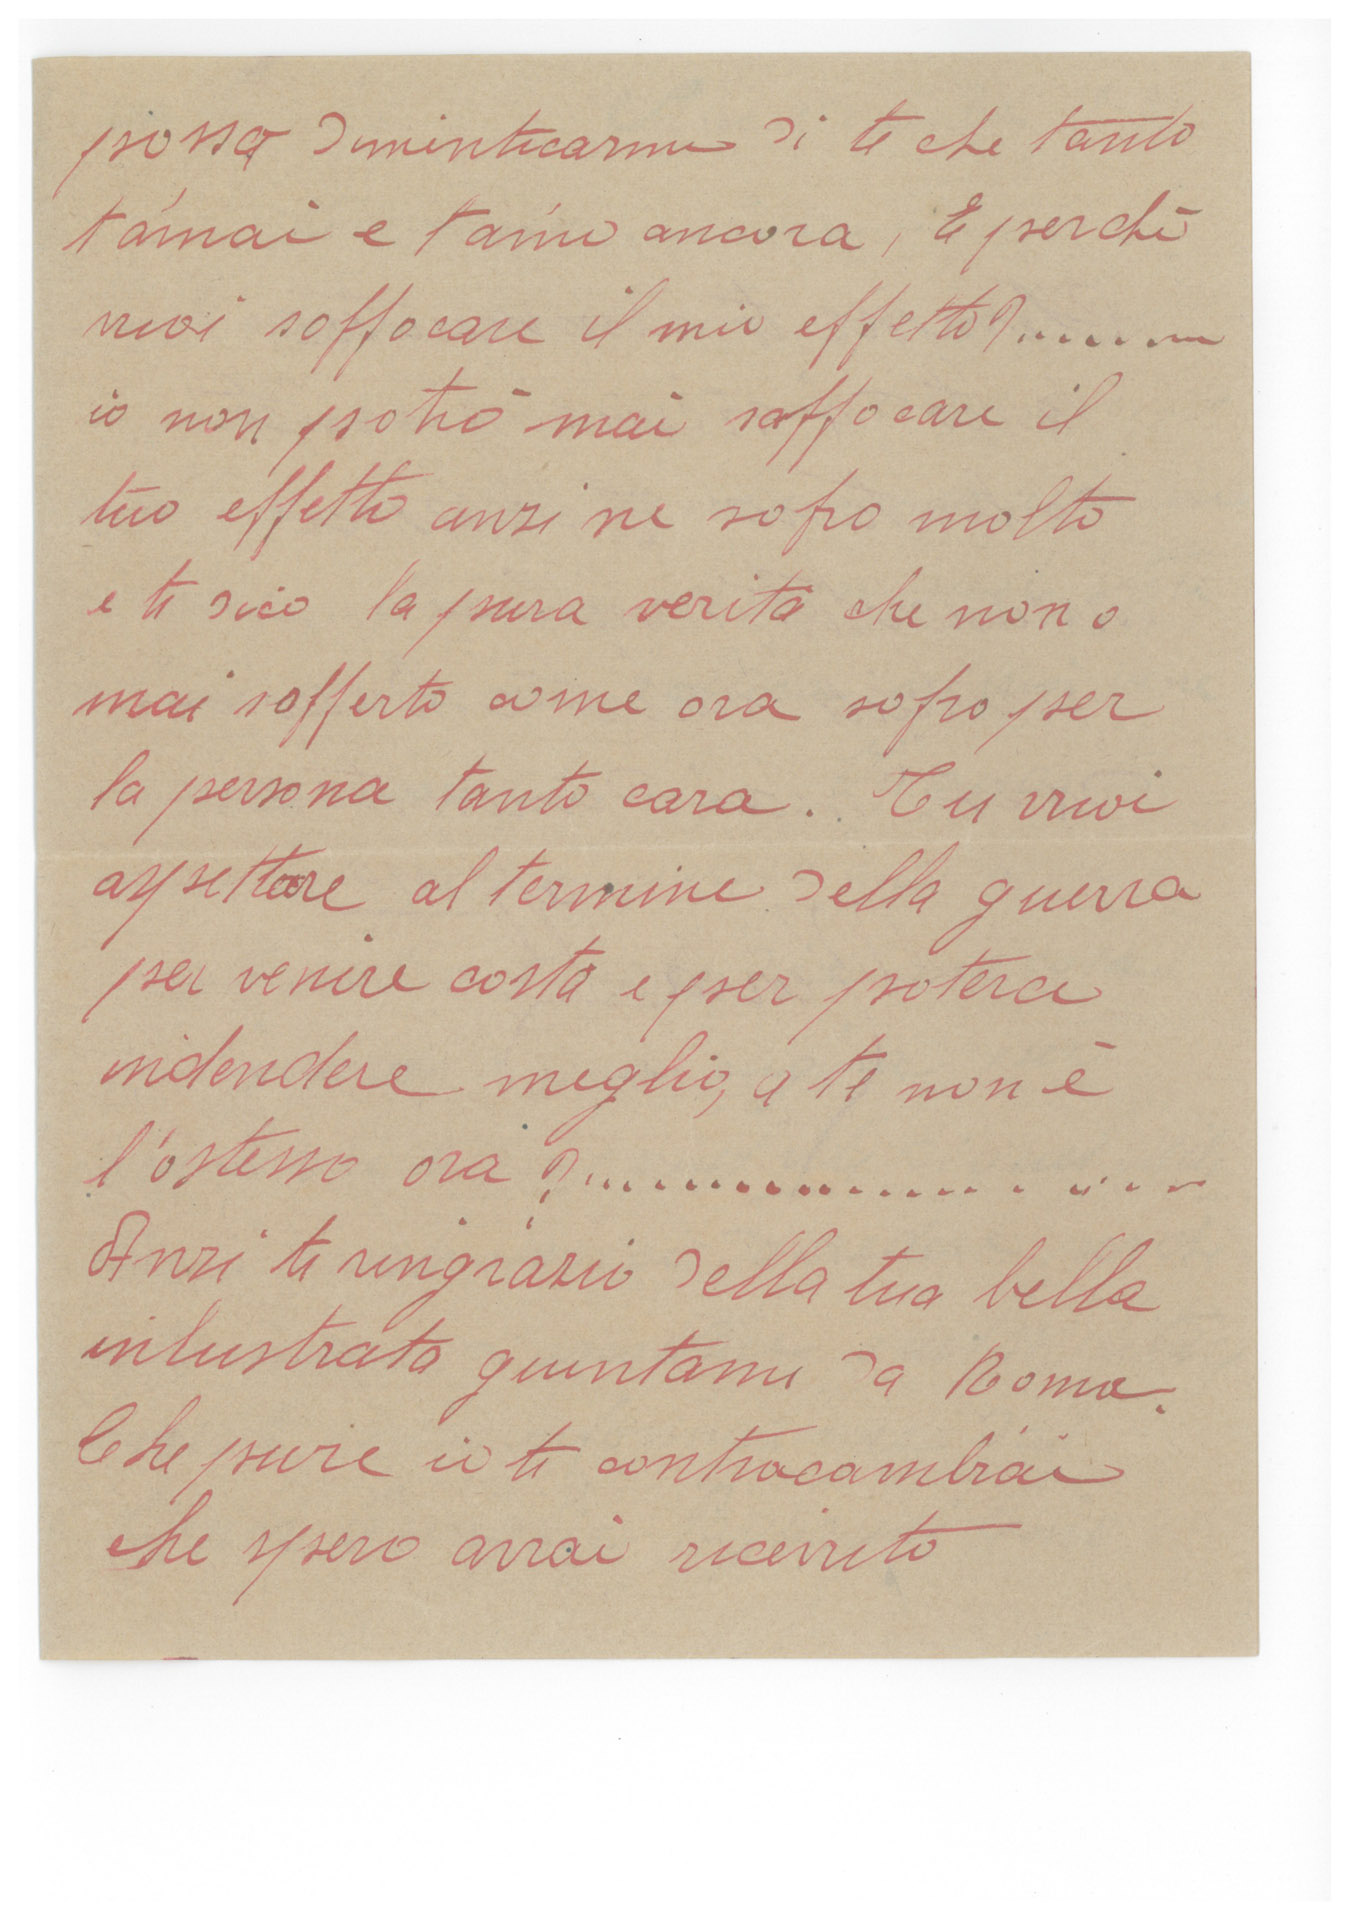 posso diminticarmi di te che tanto
t'amai e t'amo ancora, E perchè
vuoi soffocare il mio effetto?.......
io non potrò mai soffocare il
tuo effetto anzi ne sofro molto
e ti dico la pura verità che non o
mai sofferto come ora sofro per
la persona tanto cara. Tu vuoi
aspettare al termine della guerra
per venire costà e per poterci
indendere meglio, a te non è
l'ostesso ora?....................
Anzi ti ringrazio della tua bella
inlustrata guintami da Roma.
Che pure io ti contracambiai
che spero avrai ricevuto